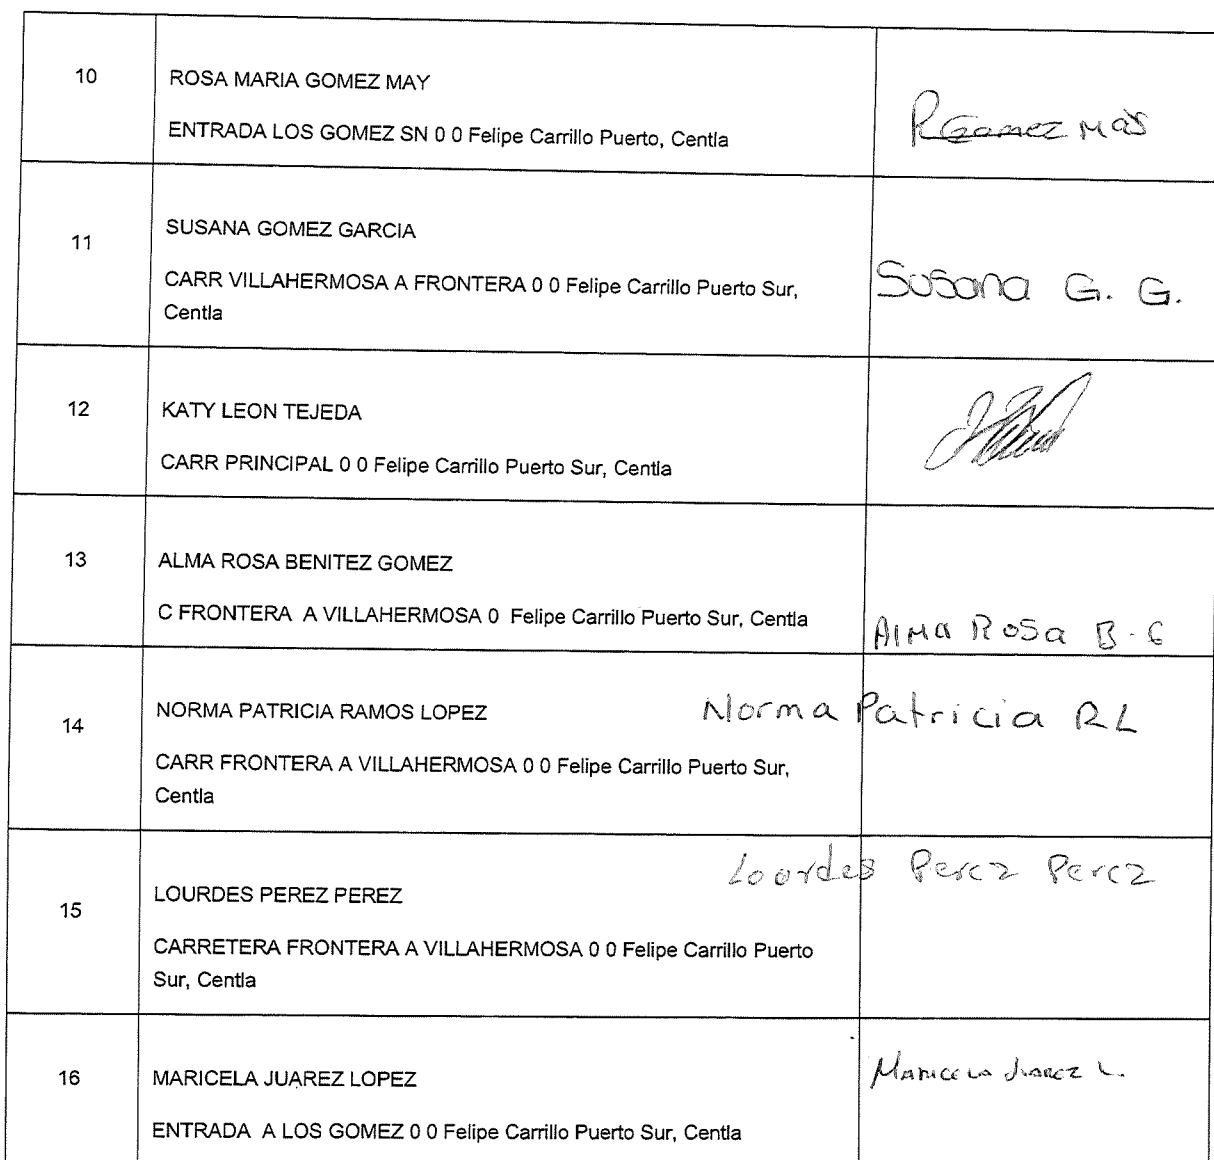 10
ROSA MARIA GOMEZ MAY
ENTRADA LOS GOMEZ SN 0 0 Felipe Carrillo Puerto, Centla
R Gomez
11
SUSANA GOMEZ GARCIA
CARR VILLAHERMOSA A FRONTERA 0 0 Felipe Carrillo Puerto Sur,
Centla
Susana G. G.
12
KATY LEON TEJEDA
CARR PRINCIPAL 0 0 Felipe Carrillo Puerto Sur, Centla
13
ALMA ROSA BENITEZ GOMEZ
C FRONTERA A VILLAHERMOSA 0 Felipe Carrillo Puerto Sur, Centla
Alma Rosa B. G
14
NORMA PATRICIA RAMOS LOPEZ
Norma Patricia R L
CARR FRONTERA A VILLAHERMOSA 0 0 Felipe Carrillo Puerto Sur,
Centla
15
Lourdes Perez Perez
LOURDES PEREZ PEREZ
CARRETERA FRONTERA A VILLAHERMOSA 0 0 Felipe Carrillo Puerto
Sur, Centla
16
MARICELA JUAREZ LOPEZ
Maricela Juarez L.
ENTRADA A LOS GOMEZ 0 0 Felipe Carrillo Puerto Sur, Centla